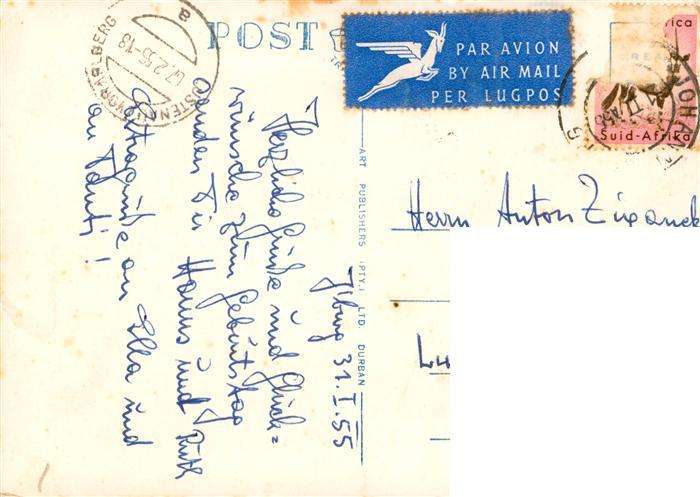 POST
PAR AVION
BY AIR MAIL
PER LUGPOS
Suid-Afrika
VORARLBERG
ART PUBLISHERS (PTY.) LTD. DURBAN
J'burg 31.I.55
Herzliche Grüße und Glück=
wünsche zum Geburtstag
senden Dir Hanns und Ruth
Extragrüße an Ella und
an Tanti!
Herrn Anton